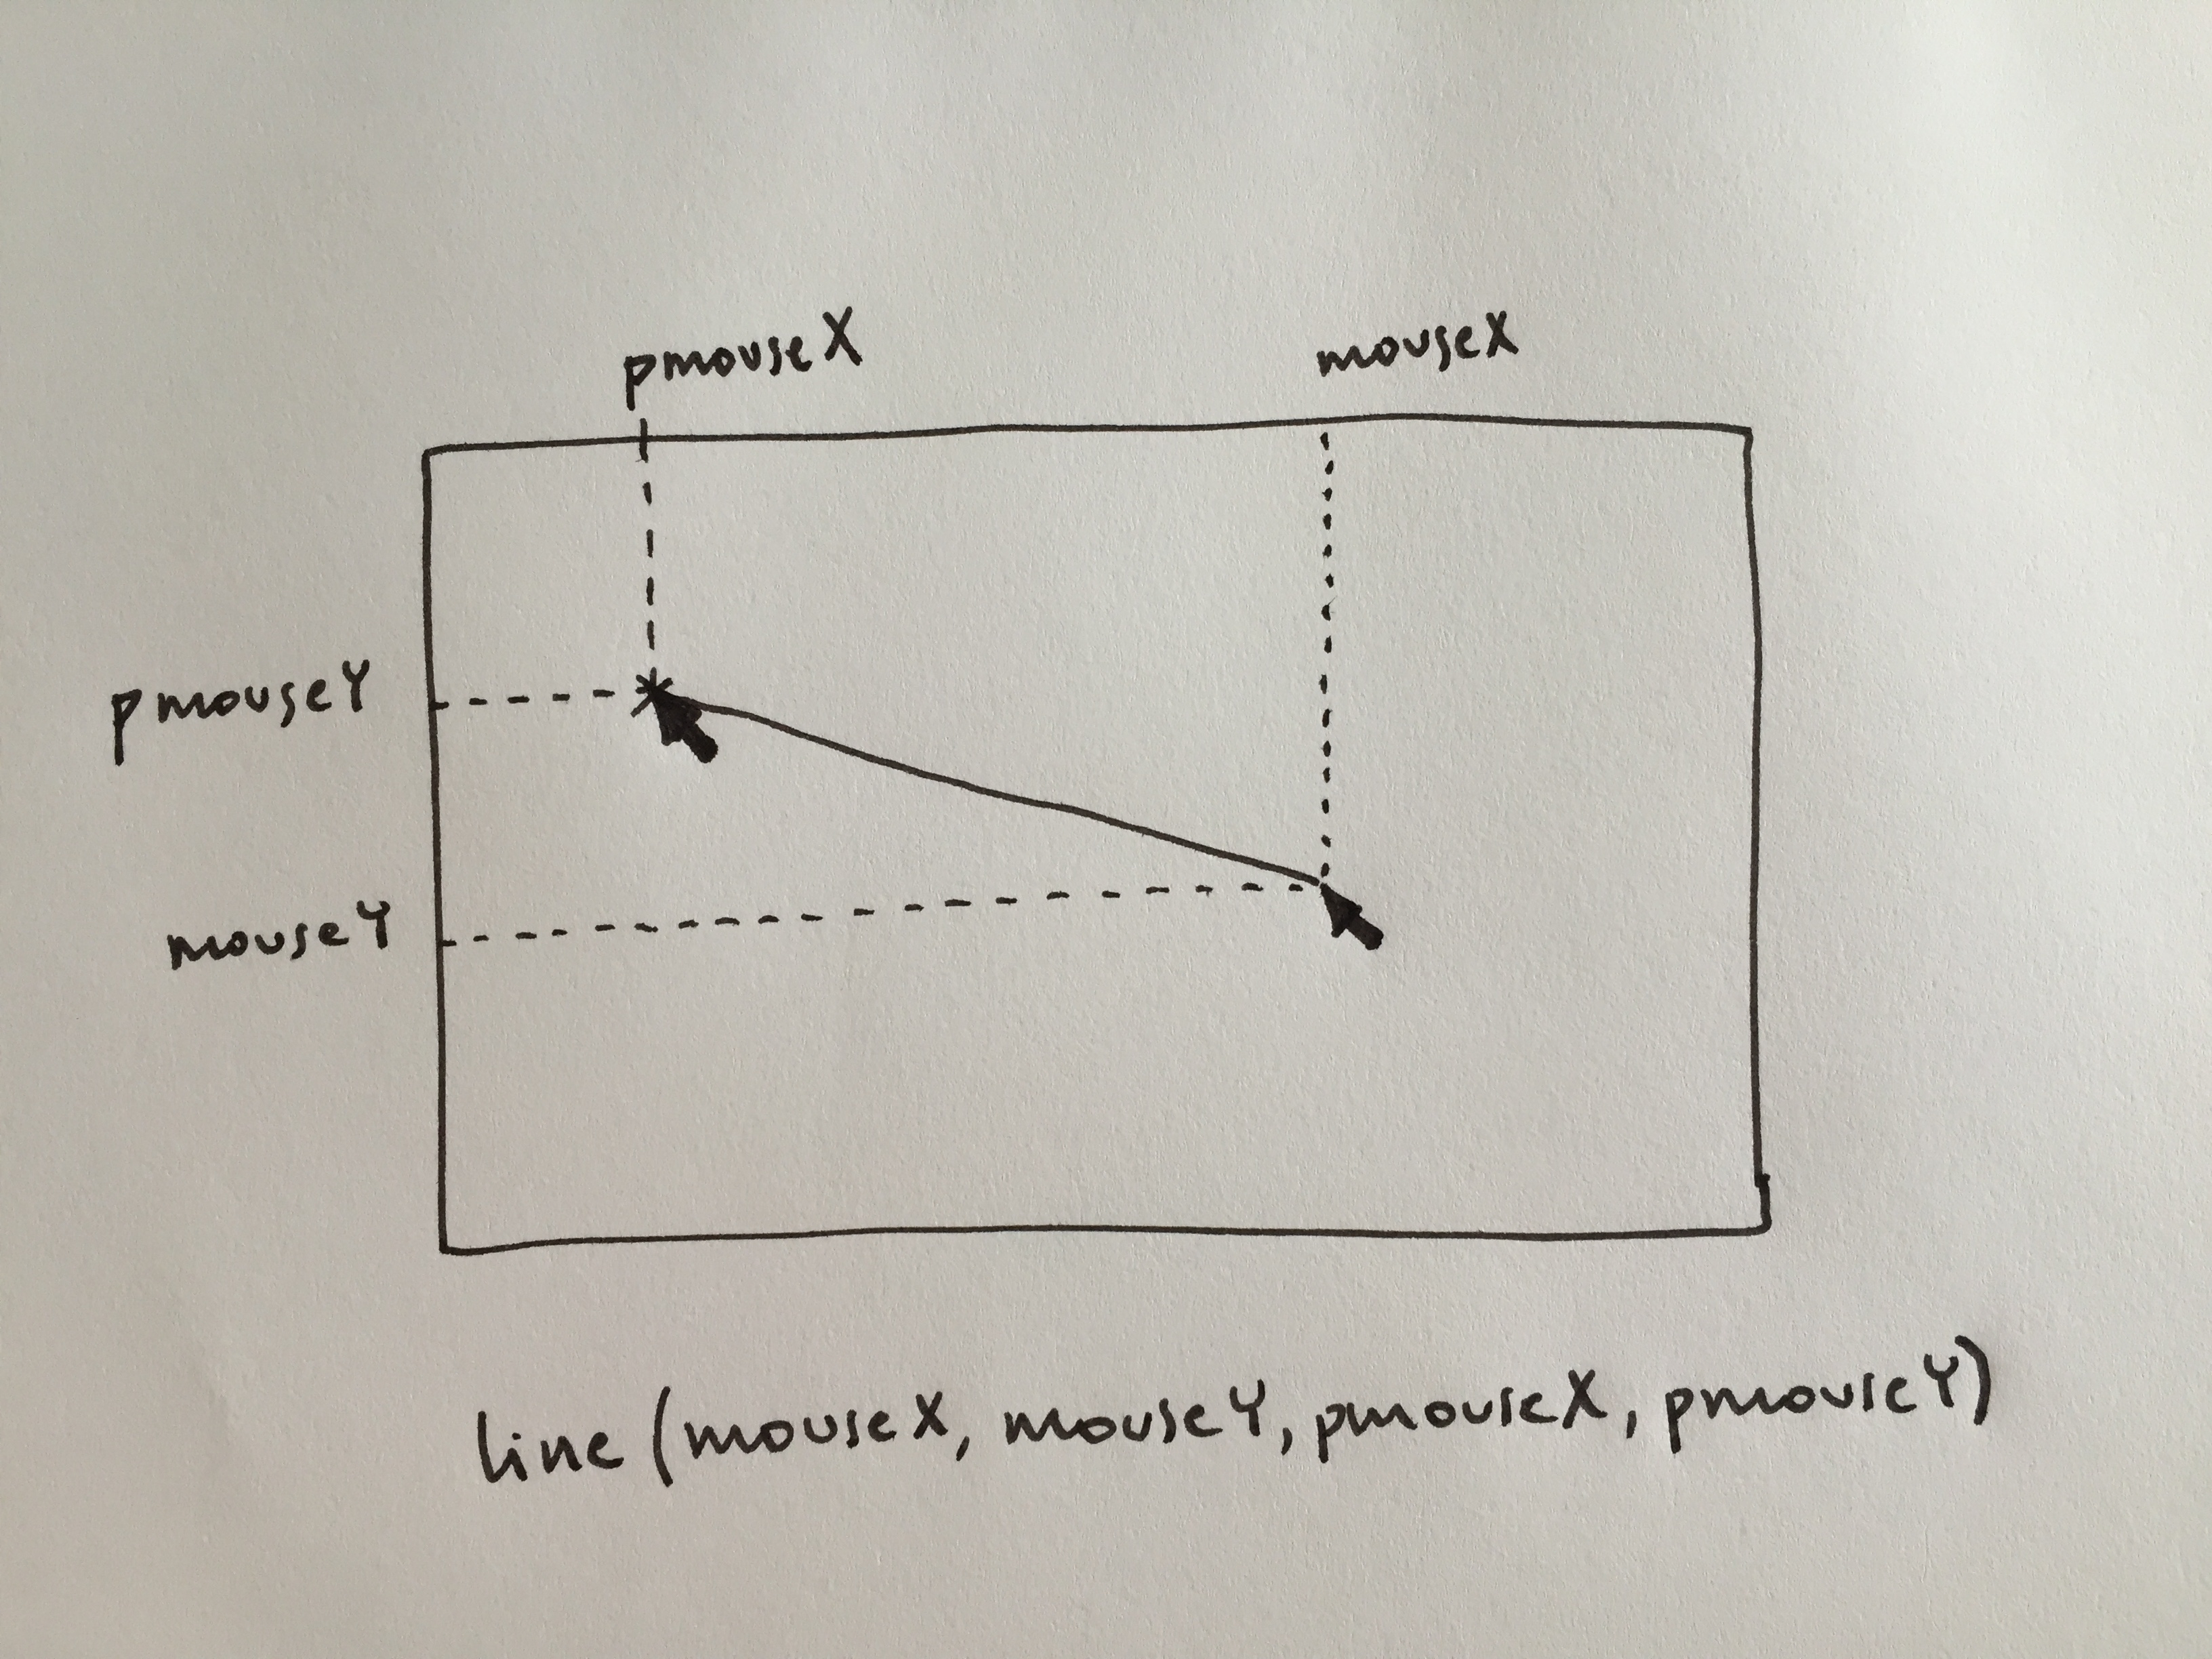 pmouseX mouseX
pmouseY
mouseY
line (mouseX, mouseY, pmouseX, pmouseY)